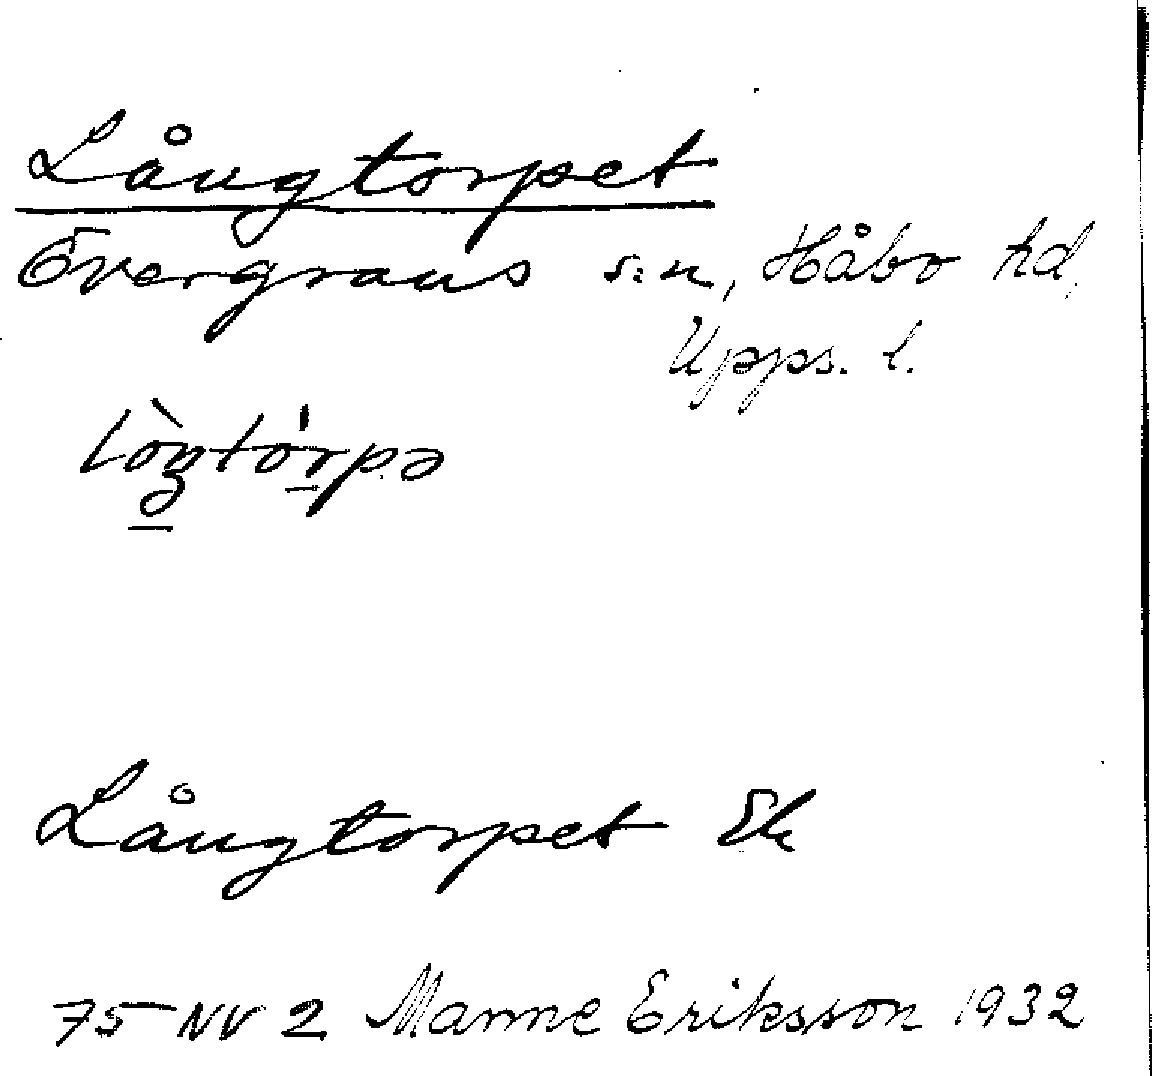 Långtorpet
Övergrans s:n, Håbo hd,
Upps. l.
lòŋtórpə
Långtorpet Ek
75 NV 2 Manne Eriksson 1932